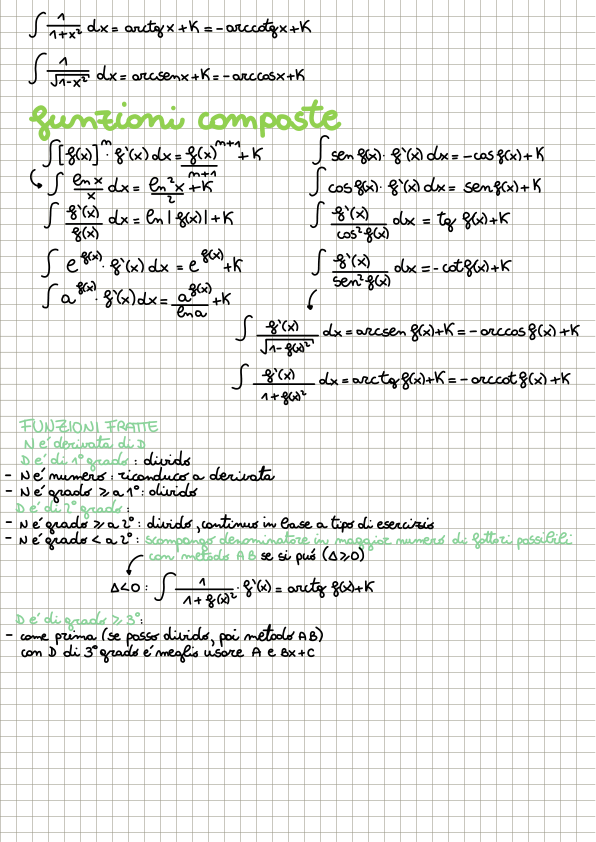 ∫ 1/(1+x²) dx = arctgx + K = -arccotgx + K
∫ 1/√(1-x²) dx = arcsenx + K = -arccosx + K
funzioni composte
∫ [f(x)]ⁿ · f'(x) dx = f(x)ⁿ⁺¹/(n+1) + K
∫ lnx/x dx = ln²x/2 + K
∫ f'(x)/f(x) dx = ln|f(x)| + K
∫ e^f(x) · f'(x) dx = e^f(x) + K
∫ a^f(x) · f'(x) dx = a^f(x)/lna + K
∫ sen f(x) · f'(x) dx = -cos f(x) + K
∫ cos f(x) · f'(x) dx = sen f(x) + K
∫ f'(x)/cos²f(x) dx = tg f(x) + K
∫ f'(x)/sen²f(x) dx = -cotf(x) + K
∫ f'(x)/√(1-f(x)²) dx = arcsen f(x) + K = -arccos f(x) + K
∫ f'(x)/(1+f(x)²) dx = arctg f(x) + K = -arccot f(x) + K
FUNZIONI FRATTE
N é derivata di D
D é di 1° grado: divido
- N é numero: riconduco a derivata
- N é grado ≥ a 1°: divido
D é di 2° grado:
- N é grado ≥ a 2°: divido, continuo in base a tipo di esercizio
- N é grado < a 2°: scompongo denominatore in maggior numero di fattori possibili
con metodo AB se si puó (Δ≥0)
Δ<0: ∫ 1/(1+f(x)²) · f'(x) = arctg f(x) + K
D é di grado ≥ 3°:
- come prima (se posso divido, poi metodo AB)
con D di 3° grado é meglio usare A e Bx+C